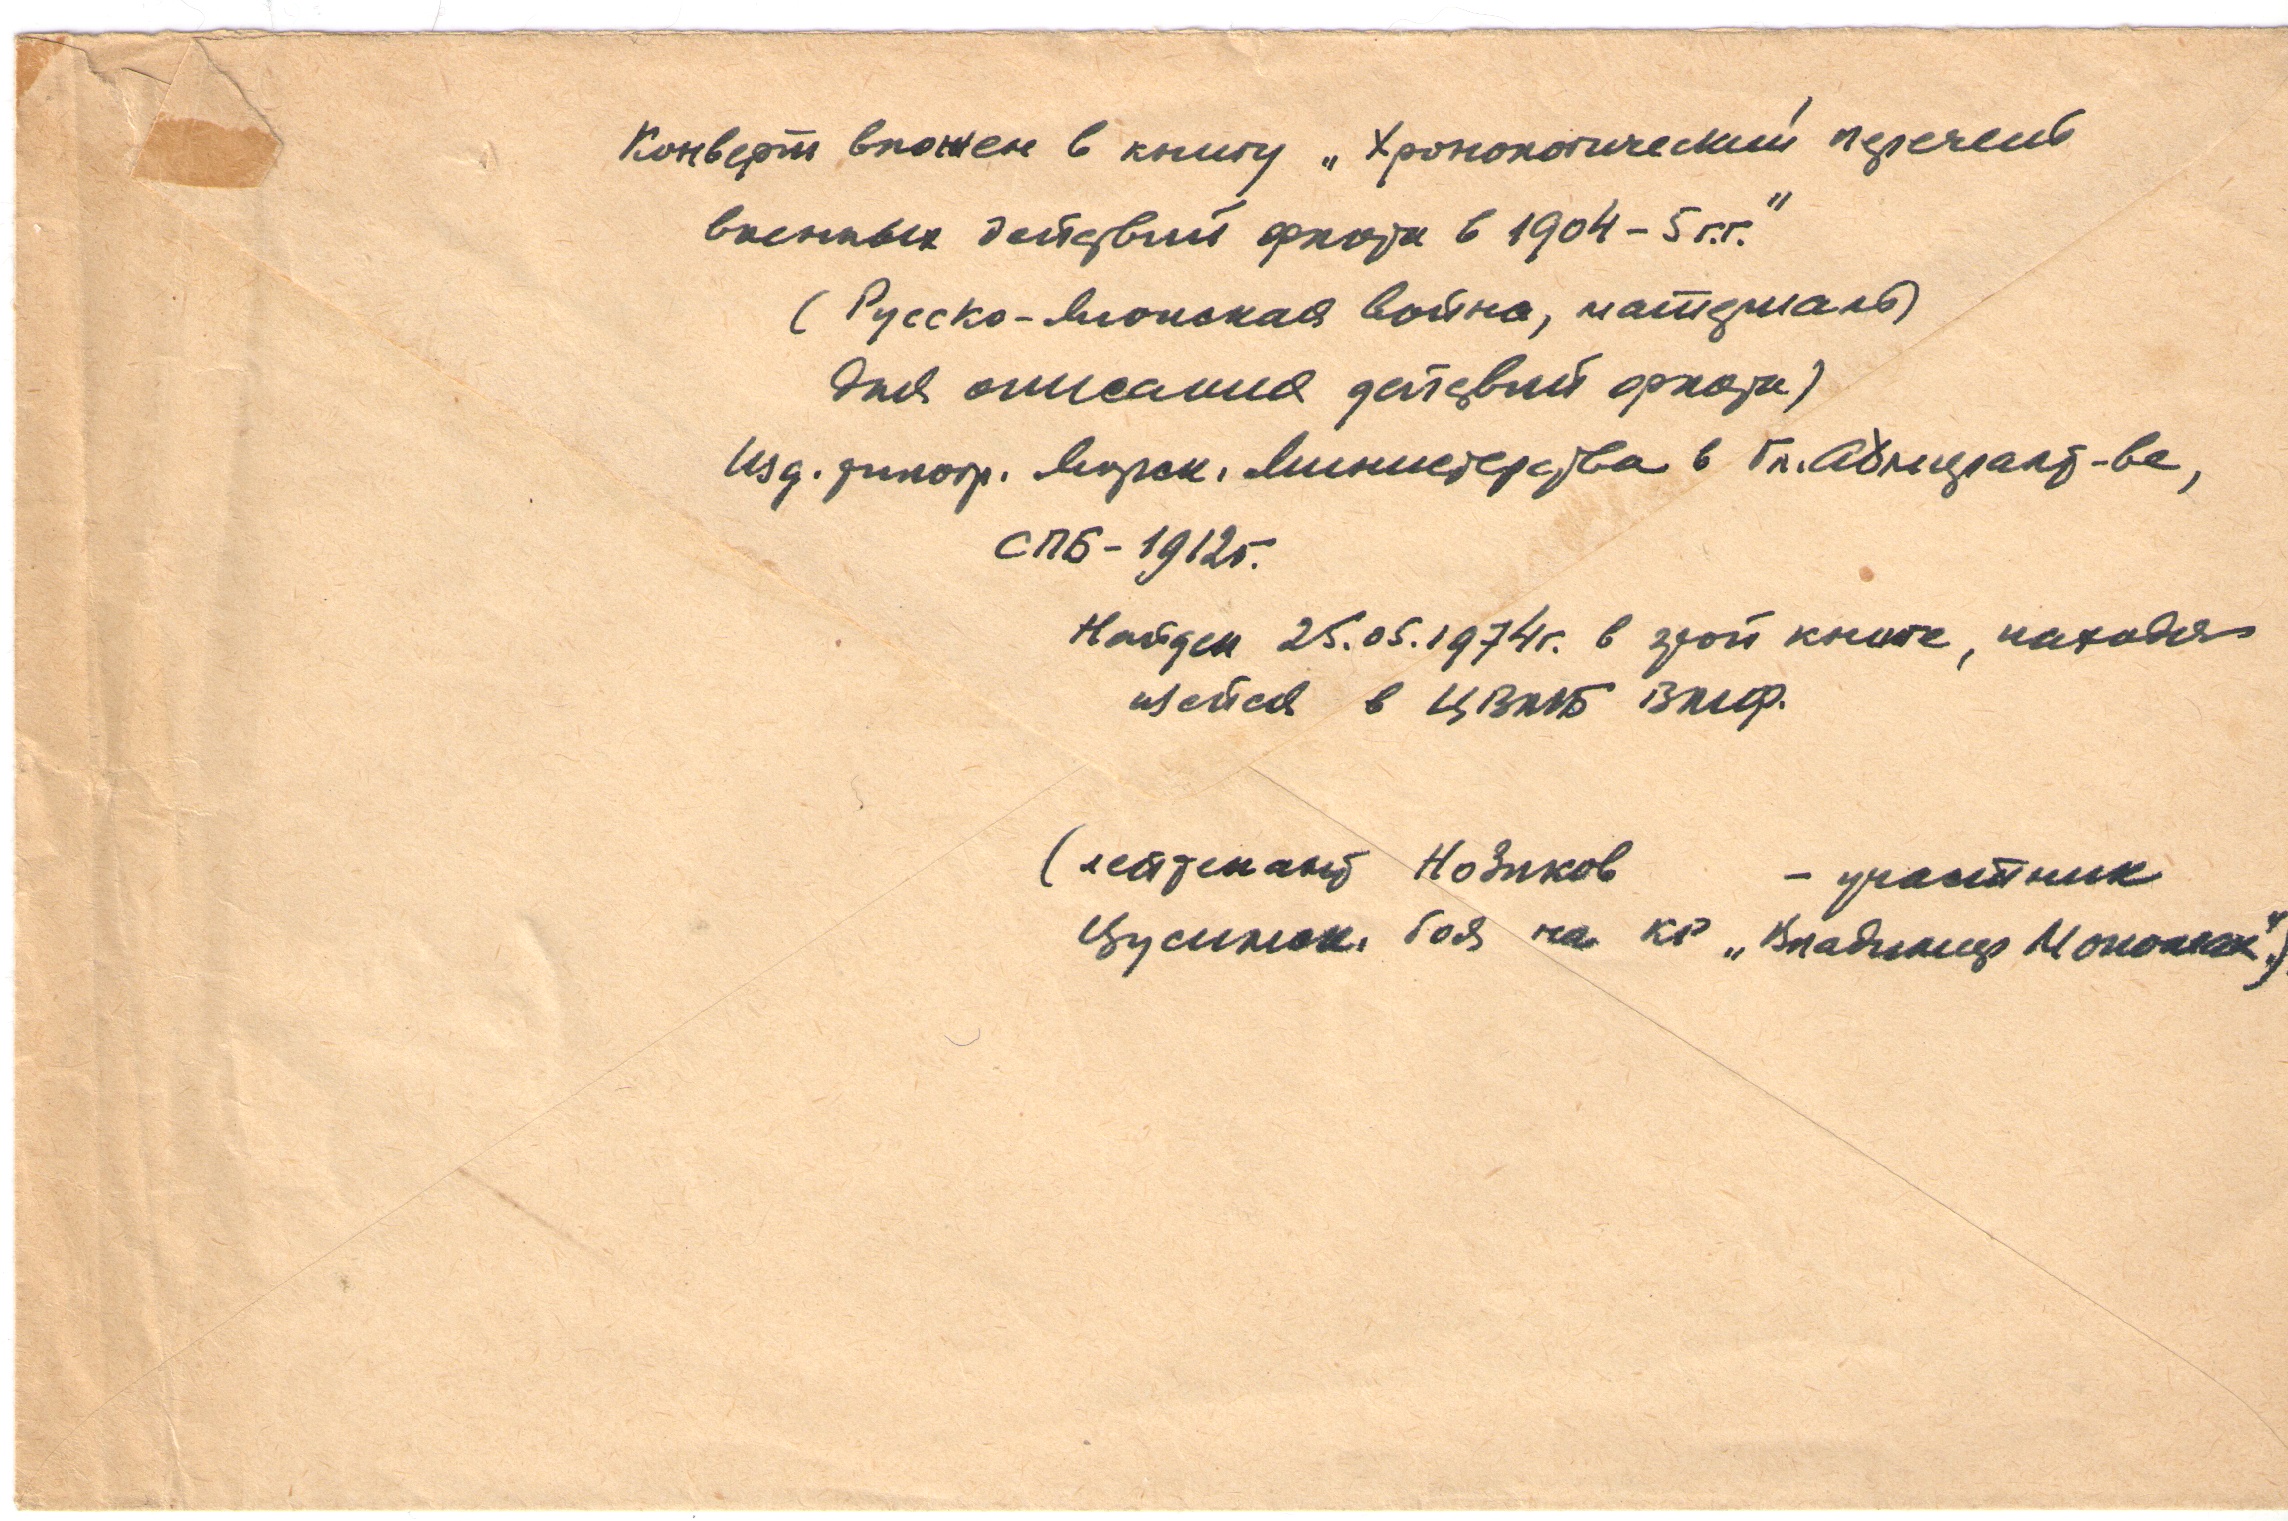 Конверт вложен в книгу „Хронологический перечень
военных действий флота в 1904 – 5 г.г."
(Русско-Японская война, материалы
для описания действий флота)
Изд. типогр. Морск. Министерства в Гл. Адмиралт-ве,
СПБ – 1912г.
Найден 25.05.1974г. в этой книге, находя-
щейся в ЦВМБ ВМФ.
(лейтенант Новиков – участник
Цусимск. боя на кр „Владимир Мономах".)